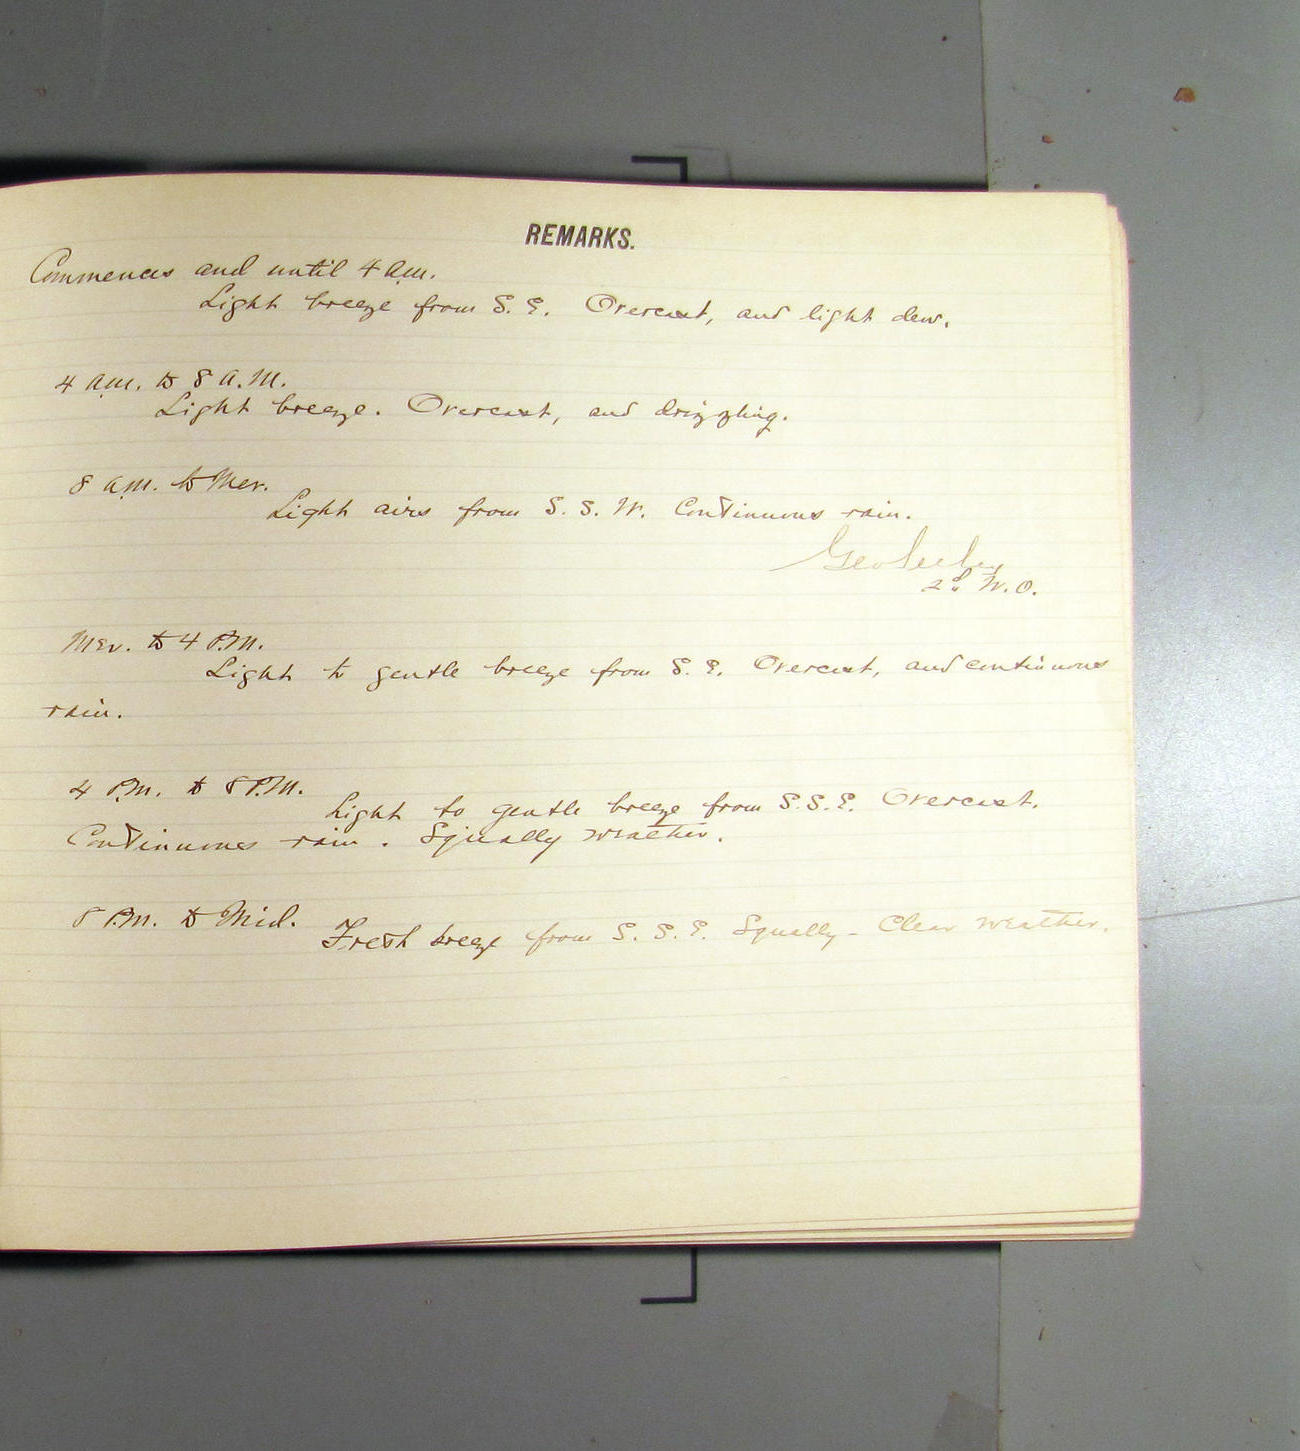 REMARKS.
Commences and until 4 a.m.
Light breeze from S. E. Overcast, and light dew.
4 a.m. to 8 A.M.
Light breeze. Overcast, and drizzling.
8 a.m. to Mer.
Light airs from S. S. W. Continuous rain.
2d W. O.
Mer. to 4 P.M.
Light to gentle breeze from S. E. Overcast, and continuous
rain.
4 P.M. to 8 P.M.
Light to gentle breeze from S.S.E. Overcast.
Continuous rain. Squally weather.
8 P.M. to Mid.
Fresh breeze from S. S. E. Squally - Clear weather.